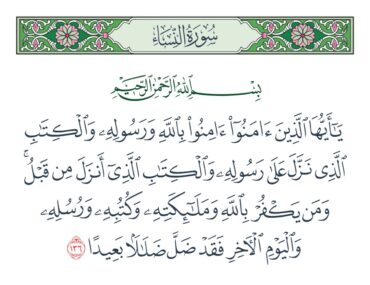 سُورَةُ النِّسَاءِ
بِسْمِ اللَّهِ الرَّحْمَٰنِ الرَّحِيمِ
يَٰٓأَيُّهَا ٱلَّذِينَ ءَامَنُوٓا۟ ءَامِنُوا۟ بِٱللَّهِ وَرَسُولِهِۦ وَٱلْكِتَٰبِ
ٱلَّذِى نَزَّلَ عَلَىٰ رَسُولِهِۦ وَٱلْكِتَٰبِ ٱلَّذِىٓ أَنزَلَ مِن قَبْلُ ۚ
وَمَن يَكْفُرْ بِٱللَّهِ وَمَلَٰٓئِكَتِهِۦ وَكُتُبِهِۦ وَرُسُلِهِۦ
وَٱلْيَوْمِ ٱلْـَٔاخِرِ فَقَدْ ضَلَّ ضَلَٰلًۢا بَعِيدًا ١٣٦